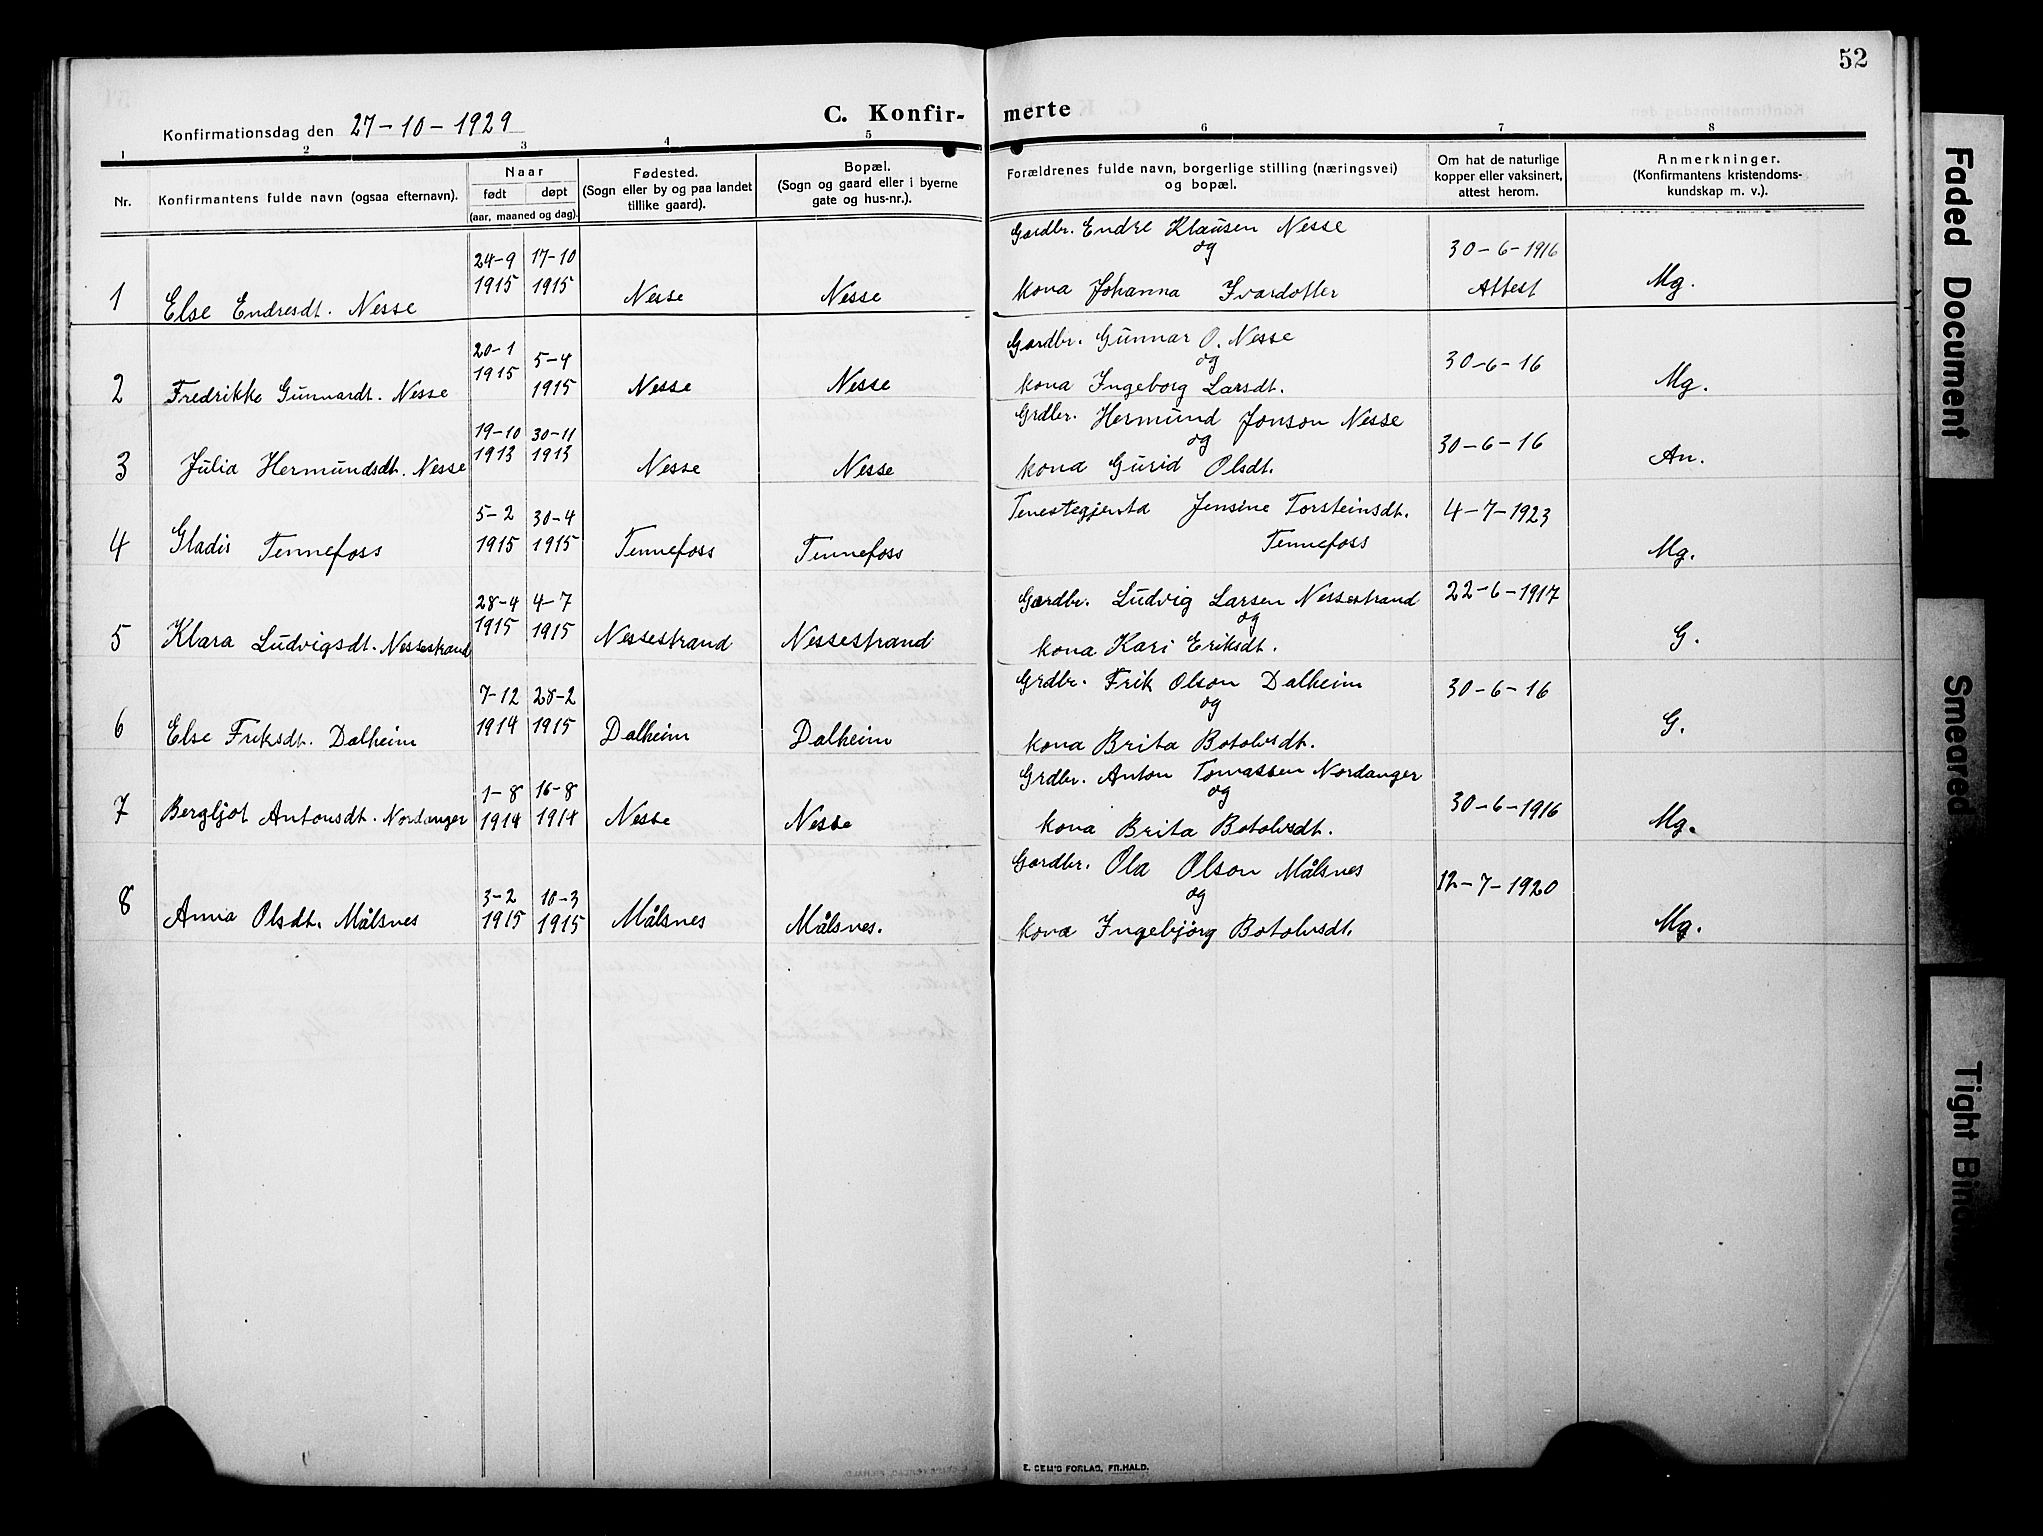 52
C. Konfirmerte
Konfirmationsdag den 27-10-1929
1 2 3 4 5 6 7 8
Nr.
Konfirmantens fulde navn (ogsaa efternavn).
Naar
født døpt
(aar, maaned og dag).
Fødested.
(Sogn eller by og paa landet
tillike gaard).
Bopæl.
(Sogn og gaard eller i byerne
gate og hus-nr.).
Forældrenes fulde navn, borgerlige stilling (næringsvei)
og bopæl.
Om hat de naturlige
kopper eller vaksinert,
attest herom.
Anmerkninger.
(Konfirmantens kristendoms-
kundskap m. v.).
1 Else Endresdt. Nesse
24-9 17-10
1915 1915
Nesse
Nesse
Gardbr. Endre Klausen Nesse
og
kona Johanna Ivardotter
30-6-1916
Attest
Mg.
2 Fredrikke Gunnardt. Nesse
20-1 5-4
1915 1915
Nesse
Nesse
Gardbr. Gunnar O. Nesse
og
kona Ingeborg Larsdt.
30-6-16
Mg.
3 Julia Hermundsdt. Nesse
19-10 30-11
1913 1913
Nesse
Nesse
Grdbr. Hermund Jonson Nesse
og
kona Gurid Olsdt.
30-6-16
An.
4 Gladis Tennefoss
5-2 30-4
1915 1915
Tennefoss
Tennefoss
Tenestegjenta Jensine Torsteinsdt.
Tennefoss
4-7-1923
Mg.
5 Klara Ludvigsdt. Nessestrand
28-4 4-7
1915 1915
Nessestrand
Nessestrand
Gardbr. Ludvig Larsen Nessestrand
og
kona Kari Eriksdt.
22-6-1917
G.
6 Else Friksdt. Dalheim
7-12 28-2
1914 1915
Dalheim
Dalheim
Grdbr. Frik Olson Dalheim
og
kona Brita Botolvsdt.
30-6-16
G.
7 Bergljot Antonsdt. Nordanger
1-8 16-8
1914 1914
Nesse
Nesse
Grdbr. Anton Tomassen Nordanger
og
kona Brita Botolvsdt.
30-6-1916
Mg.
8 Anna Olsdt. Målsnes
3-2 10-3
1915 1915
Målsnes
Målsnes.
Gardbr. Ola Olson Målsnes
og
kona Ingebjörg Botolvsdt.
12-7-1920
Mg.
FR.HALD.
Faded Document
Smeared
Tight